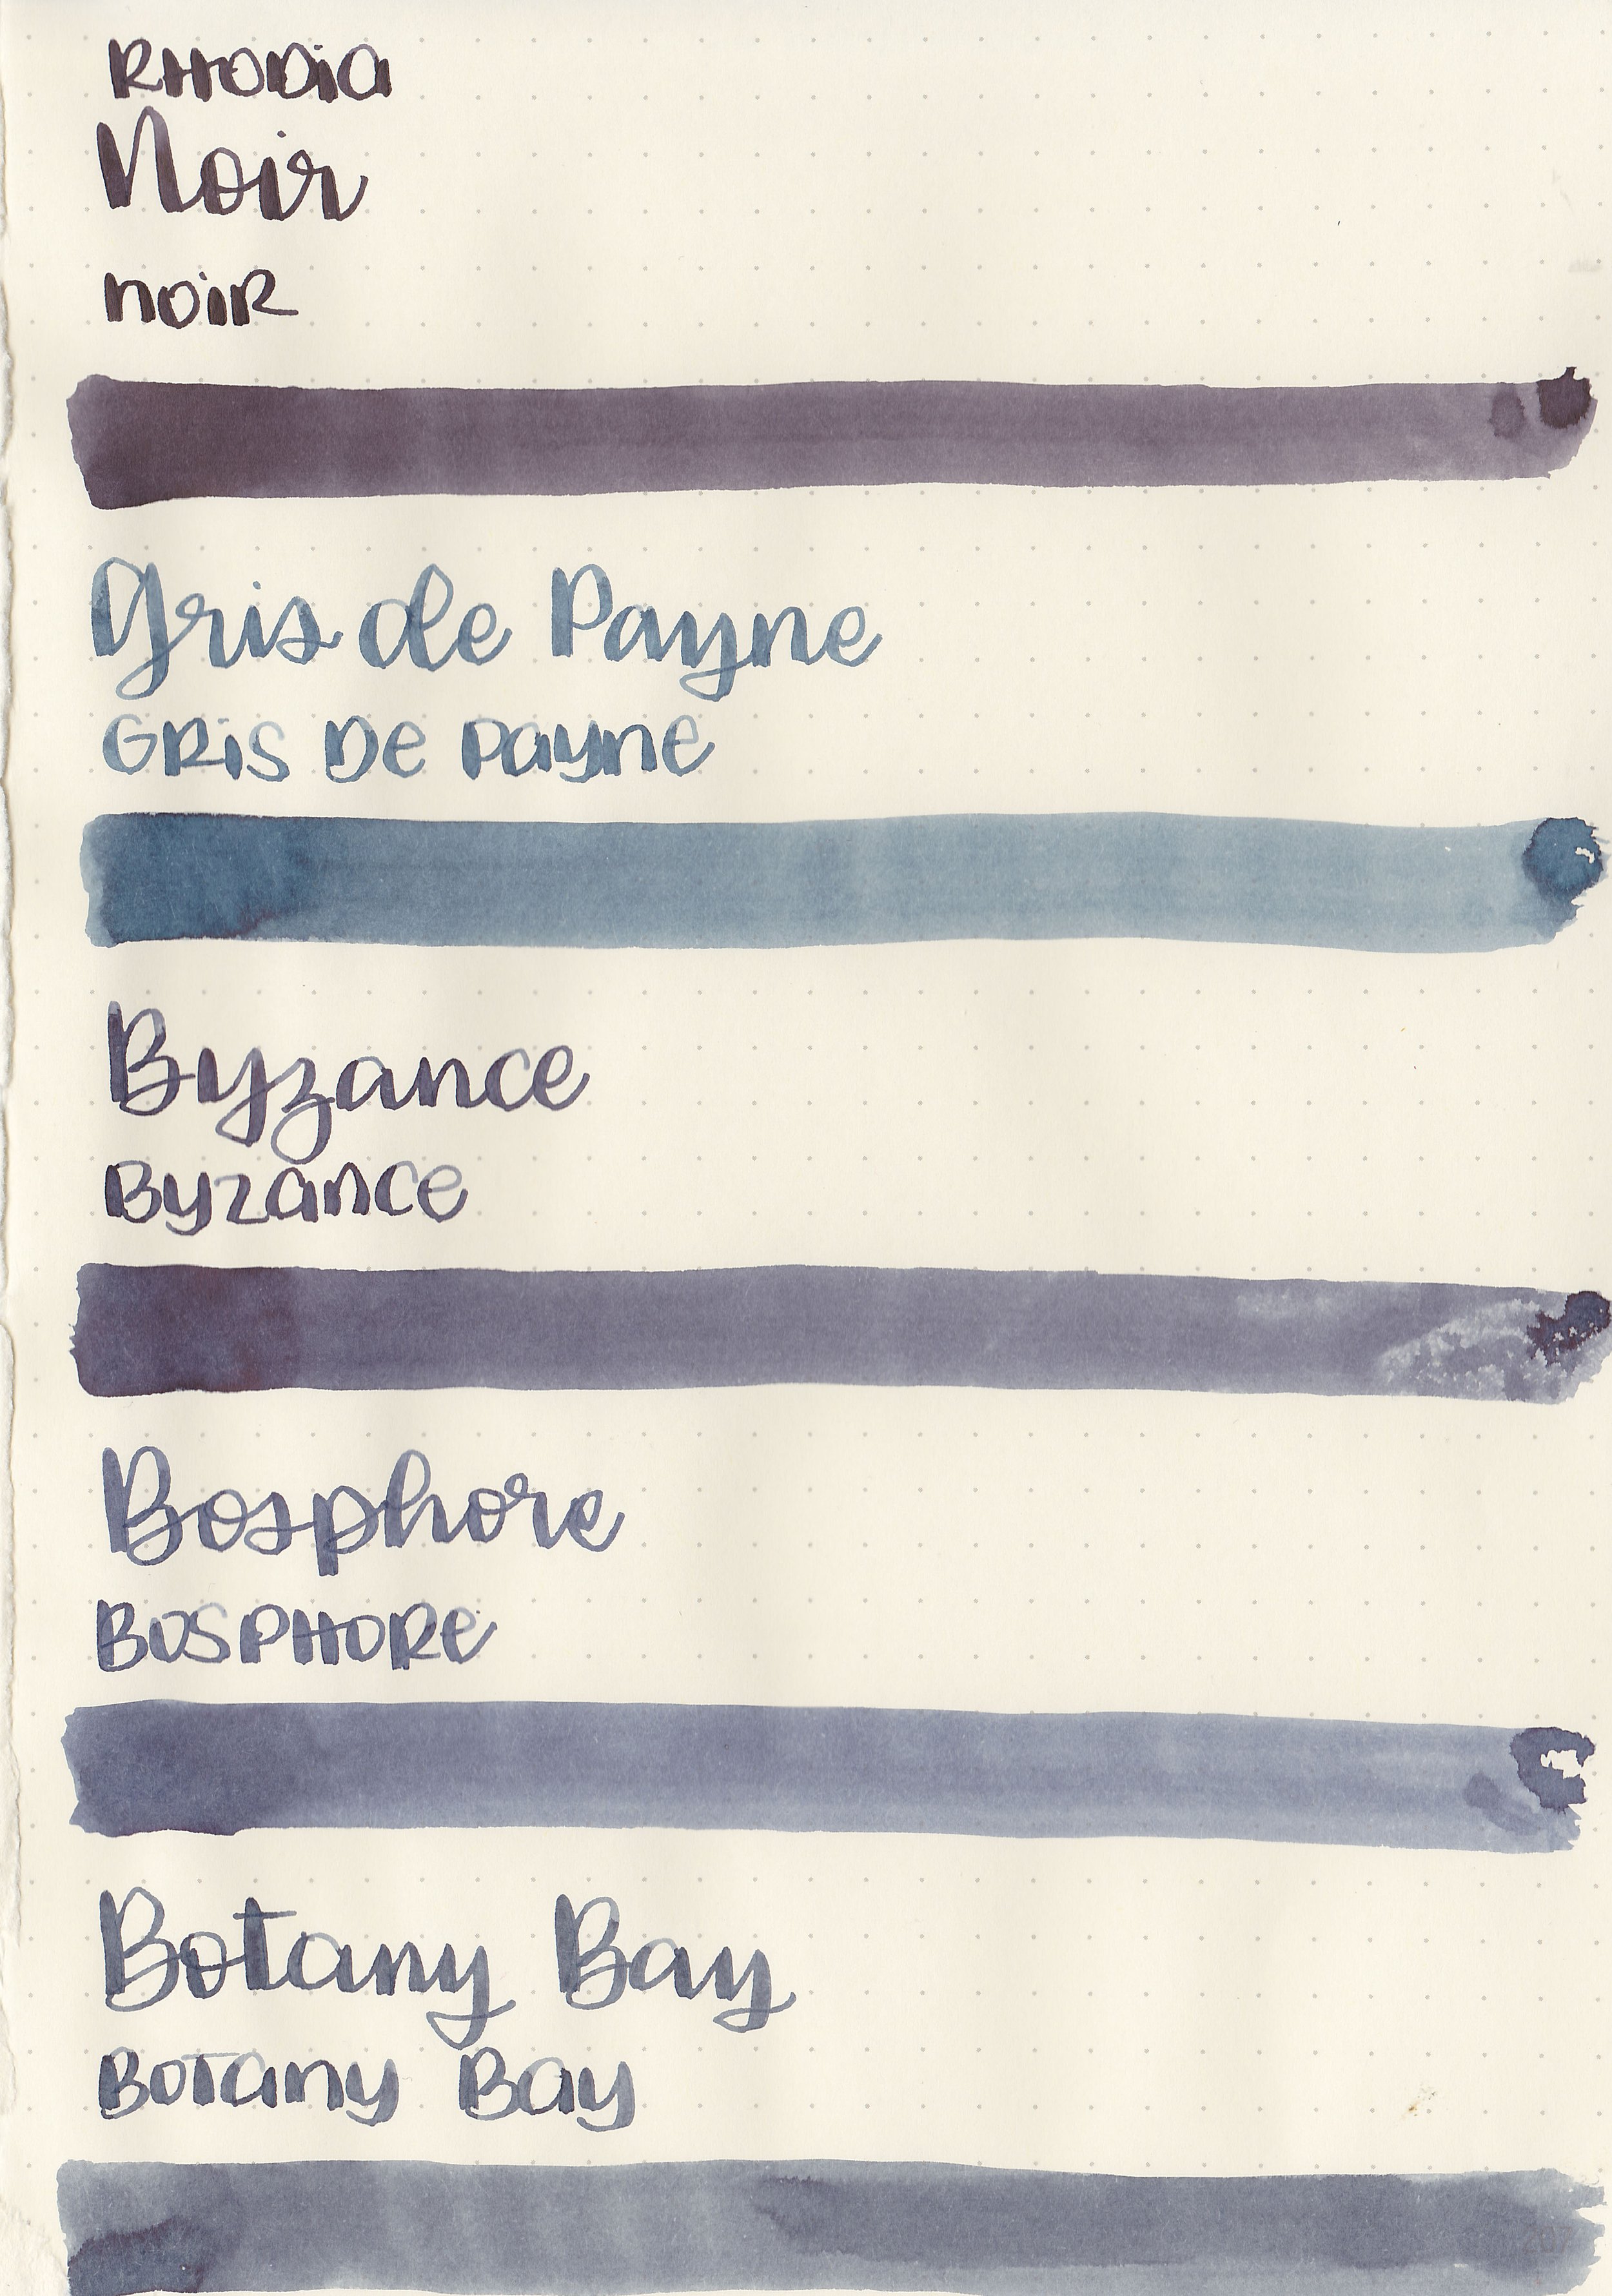 RHODIA
Noir
NOIR
Gris de Payne
GRIS DE PAYNE
Byzance
BYZANCE
Bosphore
BOSPHORE
Botany Bay
BOTANY BAY